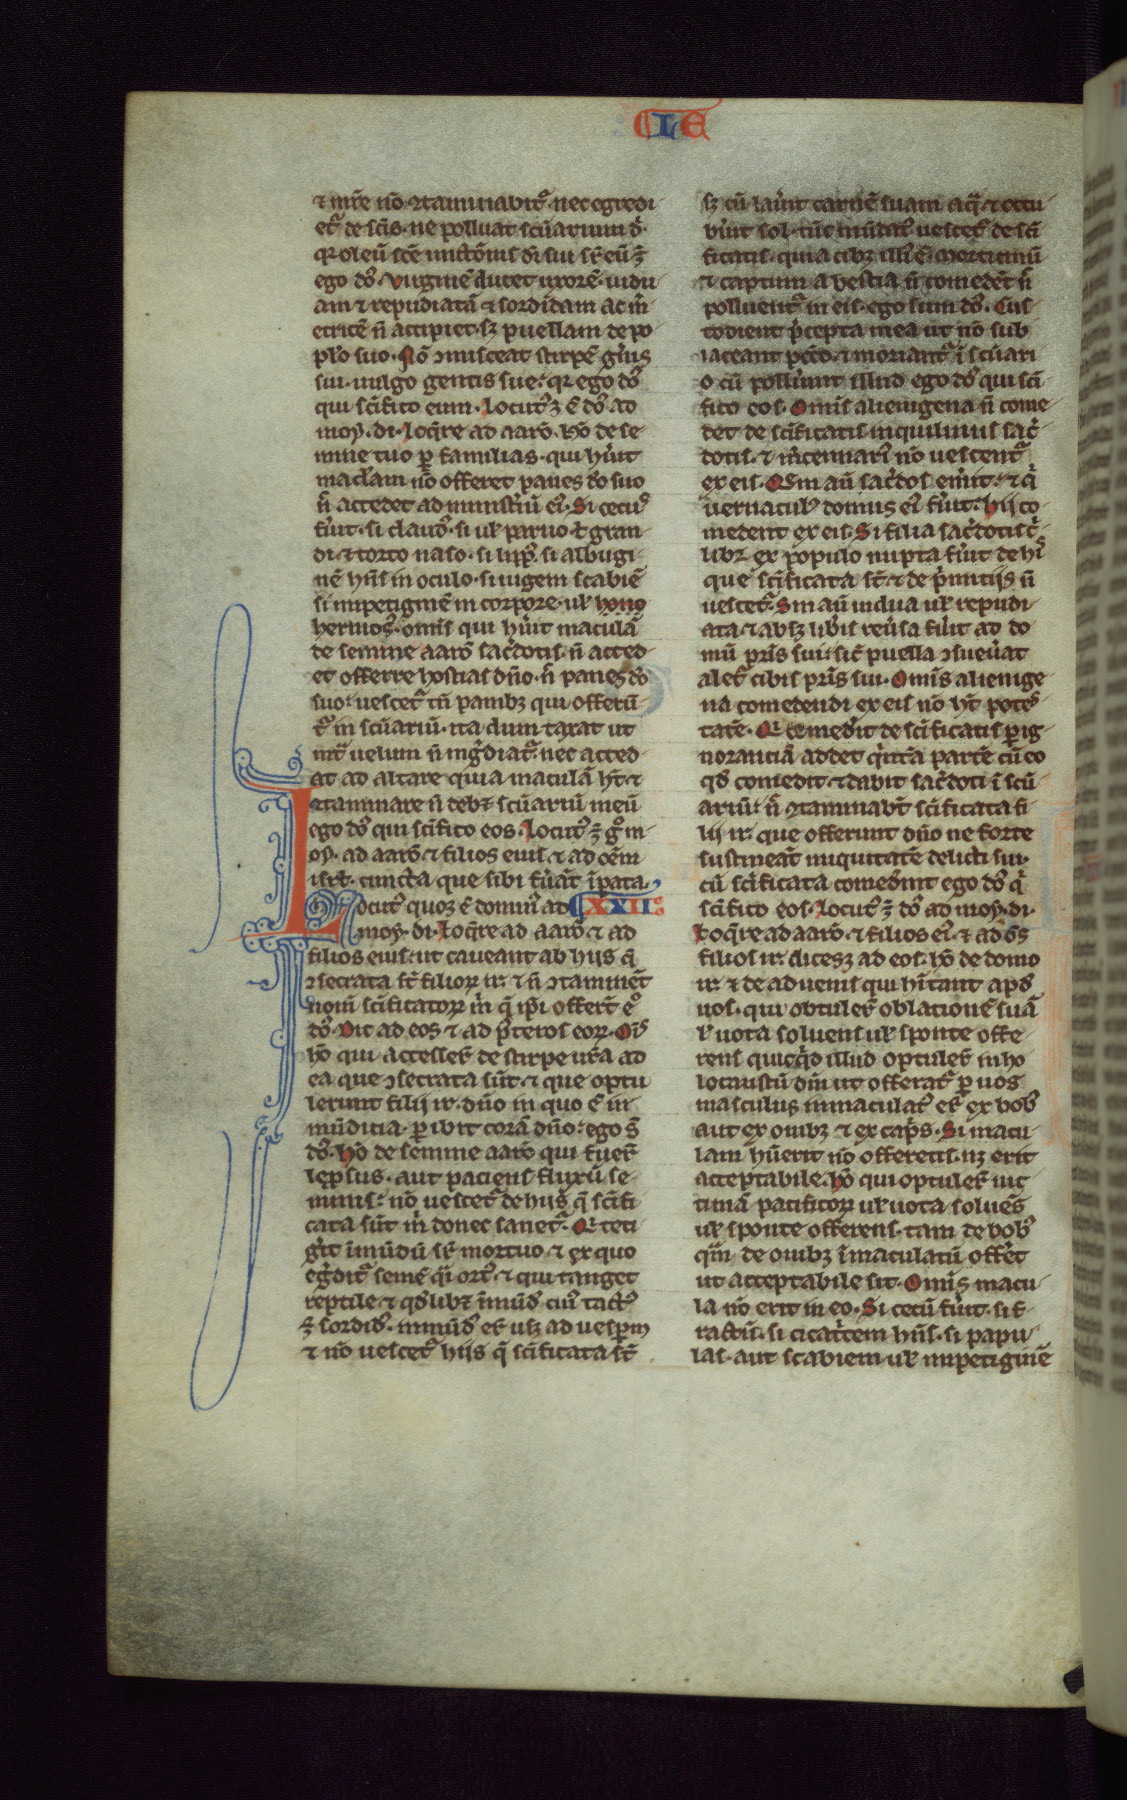 LE
⁊ mr̄e nō ꝯtaminabit᷑ · nec egredi
et᷑ de sc̄is · ne polluat sc̄uarium dn̄i ·
qꝛ oleū sc̄e unctōnis dī sui sr̄ eū ē
ego dn̄s · Uirginē ducet uxorē · uidu
am ⁊ repudiatā ⁊ sordidam ac m̄
etricē n̄ accipiet · sꝫ puellam de po
plo suo · Nō ꝯmisceat stirpē gn̄is
sui · uulgo gentis sue · qꝛ ego dn̄s
qui sc̄ifico eum · Locutꝰꝫ ē dn̄s ad
moy · di · Loq̄re ad aarō · hō de se
mine tuo ꝑ familias · qui hūit
maclam nō offeret panes dō suo
n̄ accedet ad ministiū eiꝰ · Si cecꝰ
fūit · si claudꝰ · si ul̄ paruo ul̄ gran
di ⁊ torto naso · si lipp · si albugi
nē hn̄s in oculo · si iugem scabiē
si impetiginē in corpore · ul̄ hono
herniosꝰ · omīs qui hūit maculā
de semine aarō sac̄dotis · n̄ acced
et offerre hostias dn̄o · n̄ panes dō
suo · uescet᷑ tn̄ panibꝫ qui offerū
t᷑ in sc̄uariū · ita dum taxat ut
int᷑ uelum n̄ ing̊diat᷑ · nec acced
at ad altare · quia maculā ht̄ · ⁊
ꝯtaminare n̄ debꝫ sc̄uariū meū
ego dn̄s qui sc̄ifico eos · Locutꝰ ē gͦ m
oy · ad aarō ⁊ filios eius ⁊ ad oēm
isrl̄ · cuncta que sibi fūāt īpata
Locutꝰ quoqꝫ ē dominꝰ ad XXII
moy · di · Loq̄re ad aarō ⁊ ad
filios eius · ut caueant ab hiis q̄
ꝯsecrata st̄ filioꝝ ir · ⁊ n̄ ꝯtaminēt
nom̄ sc̄ificatoꝝ m̄ q̄ ip̄i offerūt eͦ
dn̄s · Dic ad eos ⁊ ad posteros eoꝝ · Oīs
hō qui accesserit de stirpe ur̄a ad
ea que ꝯsecrata sūt · ⁊ que optu
lerunt filii ir · dn̄o in quo ē in
mūdicia · ꝑibit corā dn̄o · ego sum
dn̄s · Hō de semine aarō qui fuerit
leprsus · aut paciens fluxū se
minis · nō uescet᷑ de hiis q̄ sc̄ifi
cata sūt m̄ donec sanet᷑ · Qi teti
git īmūdū sr̄ mortuo · ⁊ ex quo
eg̊dit᷑ semē q̄i ortꝰ · ⁊ qui tanget
reptile · ⁊ qd̄libꝫ īmūdū cuiꝰ tactꝰ
ē sordidꝰ · inmūdꝰ erit usqꝫ ad uespm
⁊ nō uescet᷑ hiis q̄ sc̄ificata st̄
sꝫ cū lauit carnē suam aq̄ · ⁊ occu
buit sol · tūc mūdatꝰ uescet᷑ de sc̄i
ficatis · quia cibꝫ illiꝰ ē · Morticinū
⁊ captum a bestia n̄ comedēt n̄
polluent᷑ in eis · ego sum dn̄s · Cus
todient p̄cepta mea ut nō sub
iaceant pctō · ⁊ moriant᷑ ī sc̄uari
o cū polluint illud ego dn̄s qui sc̄i
fico eos · Omīs alienigena n̄ come
det de sc̄ificatis inquilinus sac̄
dotis · ⁊ m̄cennariꝰ nō uescent᷑
ex eis · Qm aū sac̄dos emit · ⁊ q̄
uernaculꝰ domus eiꝰ fūit · hii co
medent ex eis · Si filia sac̄dotis c̄
libꝫ ex populo nupta fūit de hiis
que sc̄ificata st̄ ⁊ de pͥmitiis n̄
uescet᷑ · Sin aū uidua ul̄ repudi
ata ⁊ absqꝫ libis reūsa fūit ad do
mū pr̄is sui · sic̄ puella ꝯsueūat
alet᷑ cibis pr̄is sui · Omīs alienige
na comedendi ex eis nō ht̄ potes
tatē · Qi comedit de sc̄ificatis ꝑ ig
noranciā addet qͥntā partē cū eo
qd̄ comedit · ⁊ dabit sac̄doti ī sc̄u
ariū · n̄ ꝯtaminabt̄ sc̄ificata fi
lii ir · que offerunt dn̄o ne forte
sustineāt iniquitatē delicti sui ·
cū sc̄ificata comedint ego dn̄s qͥ
sc̄ifico eos · Locutꝰꝫ dn̄s ad moy · di ·
Loq̄re ad aarō · ⁊ filios eiꝰ · ⁊ ad om̄s
filios ir · dicesqꝫ ad eos · hō de domo
ir · ⁊ de aduenis qui hītant apd̄
uos · qui obtulerit oblationē suā
ul̄ uota soluens ul̄ sponte offe
rens quicqͥd illud optulerit in ho
locaustū dn̄i ut offerat᷑ ꝑ uos
masculus inmaculatꝰ erit ex bobꝰ
aut ex ouibꝫ ⁊ ex capis · Si macu
lam hūerit nō offeretis · nꝫ erit
acceptabile · hō qui optulerit uic
timā pacificoꝝ ul̄ uota soluēs
ul̄ sponte offerens · tam de bobꝰ
qm̄ de ouibꝫ īmaculatū offēt
ut acceptabile sit · Omīs macu
la nō erit in eo · Si cecū fūit · si f
ractū · si cicatcem hn̄s · si papu
las · aut scabiem · ul̄ impetiginē